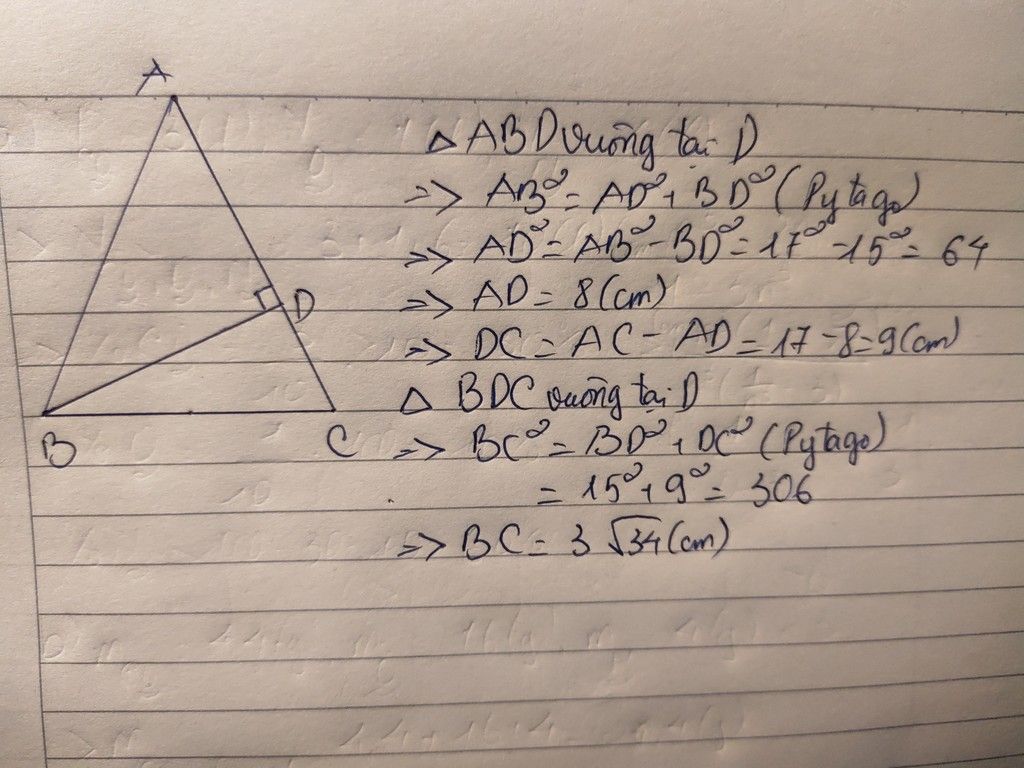 A
D
B
C
Δ ABD vuông tại D
=> AB² = AD² + BD² (Pytago)
=> AD² = AB² - BD² = 17² - 15² = 64
=> AD = 8 (cm)
=> DC = AC - AD = 17 - 8 = 9 (cm)
Δ BDC vuông tại D
=> BC² = BD² + DC² (Pytago)
= 15² + 9² = 306
=> BC = 3√34 (cm)